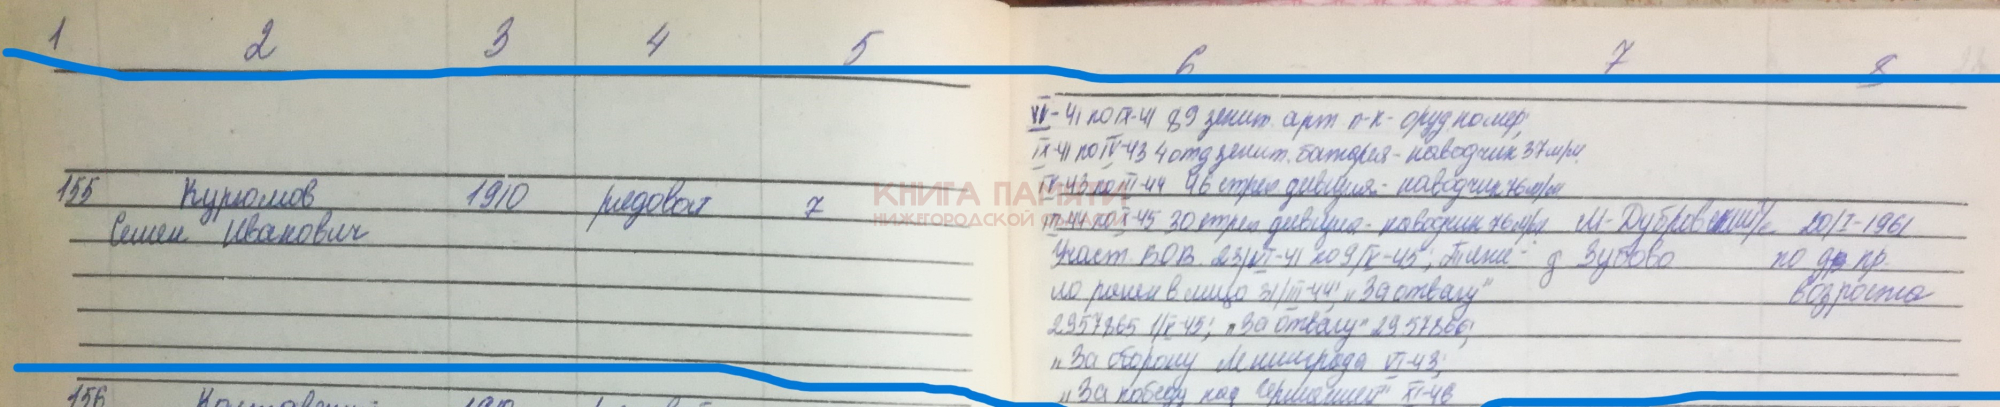 1 2 3 4 5 6 7 8
VII-41 по IX-41 89 зенит. арт п-к- оруд. номер;
IX-41 по IV-43 4 отд зенит. батарея- наводчик 37 м/м
КНИГА ПАМЯТИ
НИЖЕГОРОДСКОЙ ОБЛАСТИ
IV-43 по III-44 46 стрел дивизия- наводчик 76 м/м
155 Курюмов 1910 рядовой 7
по II-45 30 стрел дивизия- наводчик 76 м/м М-Дубровский 20/I-1961
Семен Иванович
Участ. ВОВ. 23/VII-41 по 9/V-45; Тяже- д Зубово по пр.
ло ранен в лицо 31/III-44; "За отвагу" возраста
2957865 "За отвагу" 2957866;
"За оборону Ленинграда VI-43;
"За победу над Германией" XI-46
156 1910